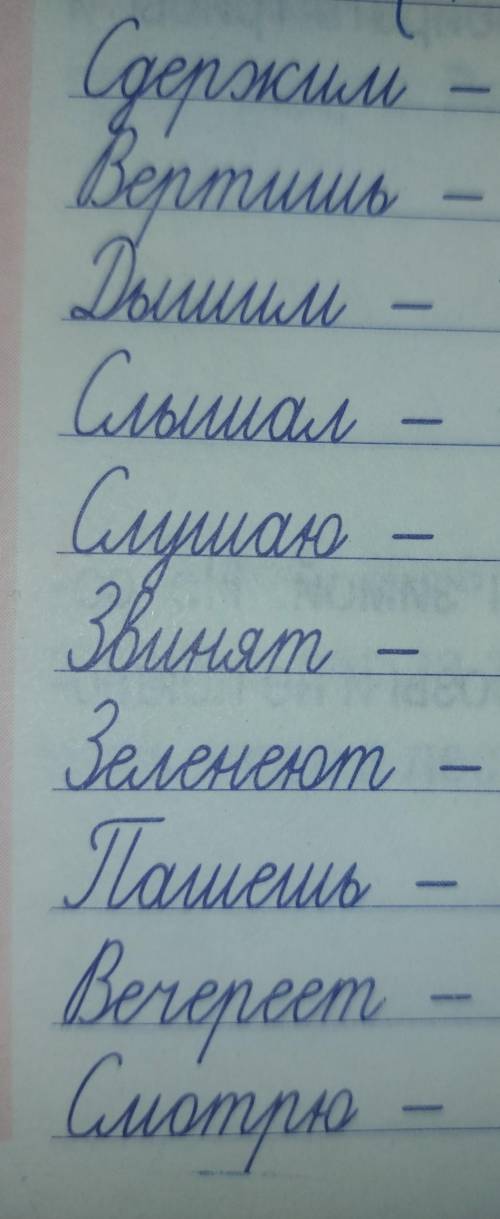 Сдержим –
Вертишь –
Дышим –
Слышал –
Слушаю –
Звинят –
Зеленеют –
Пашешь –
Вечереет –
Смотрю –